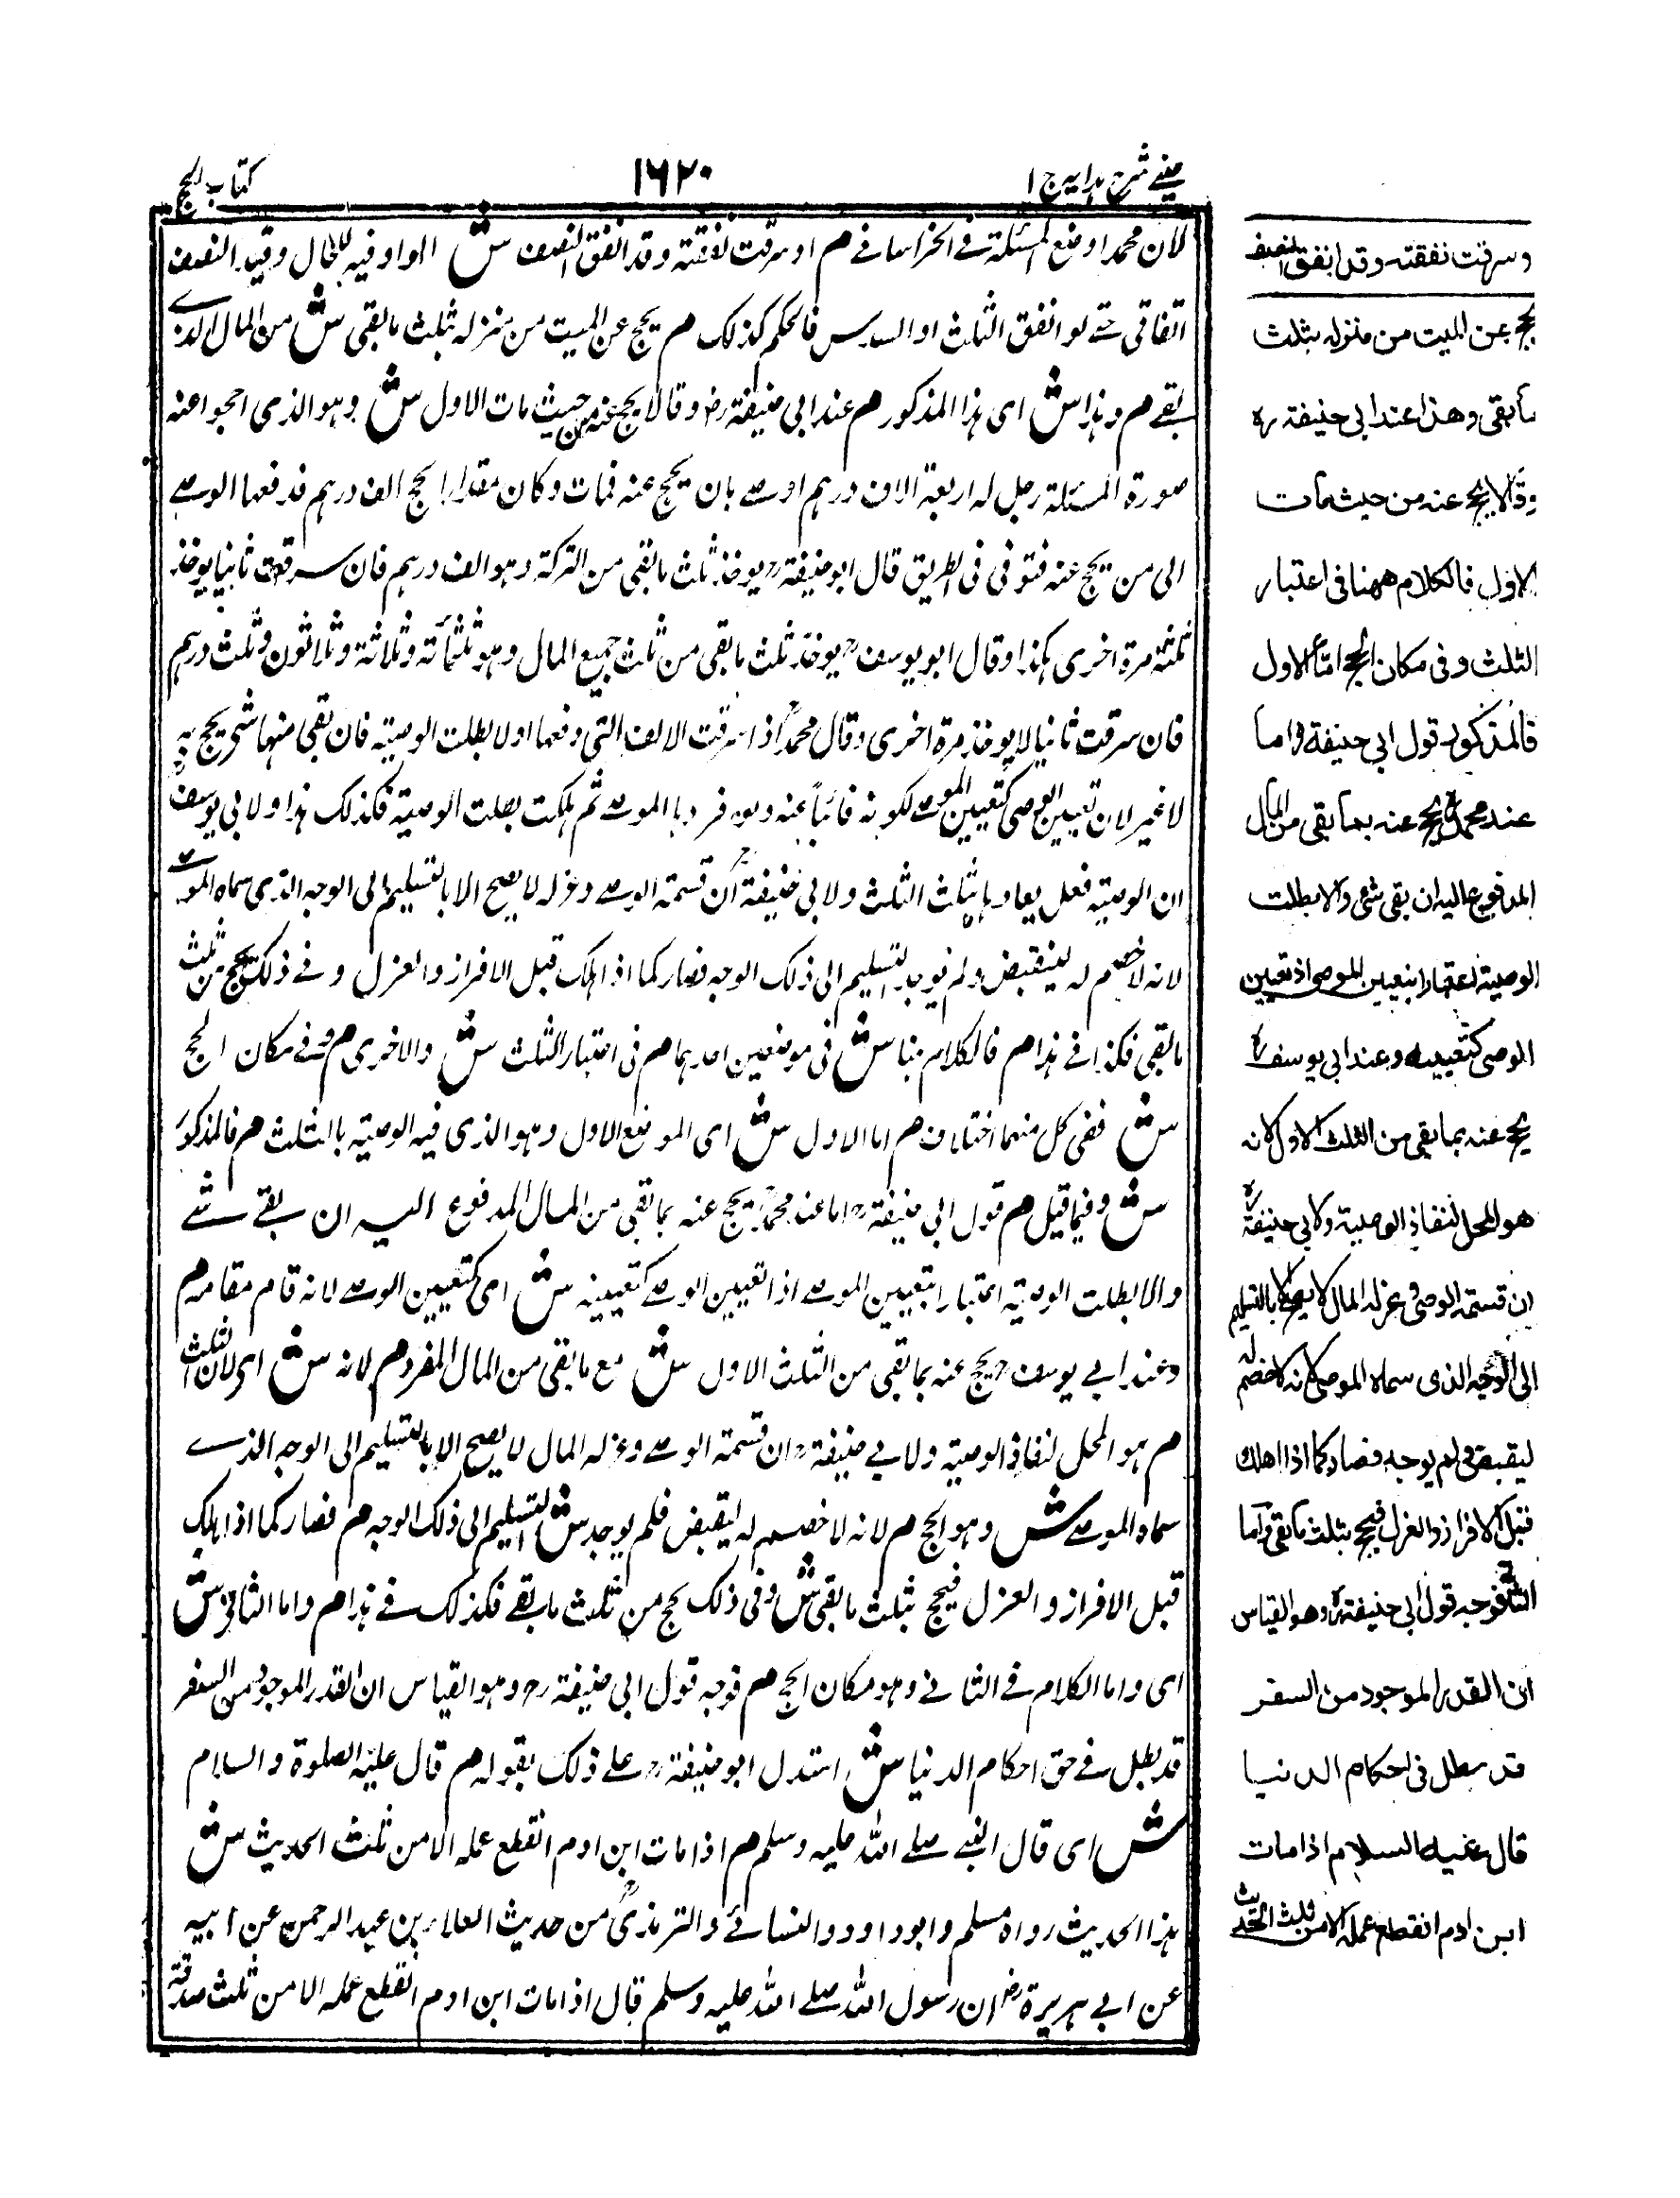 عينى شرح هدايه ج ١
١٦٢٠
كتاب الحج
لان محمدا وضع المسئلة في الخراساني م او سرقت نفقته وقد انفق النصف ش الواو فيه للحال وقيد النصف
اتفاقى حتى لو انفق الثلث او السدس فالحكم كذلك م يحج عن الميت من منزله بثلث ما بقى ش من المال الذى
بقى م وهذا ش اى هذا المذكور م عند ابى حنيفة رض وقالا يحج عنه من حيث مات الاول ش وهو الذى احجوا عنه
صورة المسئلة رجل له اربعة الاف درهم اوصى بان يحج عنه فمات وكان مقدار الحج الف درهم فدفعها الوصى
الى من يحج عنه فتوفى فى الطريق قال ابو حنيفة رح يوخذ ثلث ما بقى من التركة وهو الف درهم فان سرقت ثانيا يوخذ
ثلثه مرة اخرى هكذا وقال ابو يوسف رح يوخذ ثلث ما بقى من ثلث جميع المال وهو ثلثمائة وثلاثة وثلاثون وثلث درهم
فان سرقت ثانيا لا يوخذ مرة اخرى وقال محمد رح اذا سرقت الالف التى دفعها اولا بطلت الوصية فان بقى منها شئ يحج به
لا غير لان تعيين الوصى كتعيين الموصى لكونه قائما عنه ولو افردها الموصى ثم هلكت بطلت الوصية فكذلك هذا ولابى يوسف رح
ان الوصية فعل بثلث الثلث ولابى حنيفة رح ان قسمة الوصى وعزله لا يصح الا بالتسليم الى الوجه الذى سماه الموصى
لانه لا خصم له ليقبض ولم يوجد التسليم الى ذلك الوجه فصار كما اذا هلك قبل الافراز والعزل وفى ذلك يحج من ثلث
ما بقى فكذا فى هذا م فالكلام هنا ش فى موضعين احدهما م فى اعتبار الثلث ش والاخرى م وفى مكان الحج
ش ففى كل منهما اختلاف م اما الاول ش اى الموضع الاول وهو الذى فيه الوصية بالثلث م فالمذكور
ش وفيما قيل م قول ابى حنيفة رح اما عند محمد رح يحج عنه بما بقى من المال المدفوع اليه ان بقى شئ
والا بطلت الوصية اعتبارا بتعيين الموصى اذ تعيين الوصى كتعيينه ش اى كتعيين الموصى لانه قام مقامه م
وعند ابى يوسف رح يحج عنه بما بقى من الثلث الاول ش مع ما بقى من المال المفرد م لانه ش اى لان الثلث
م هو المحل لنفاذ الوصية ولابى حنيفة رح ان قسمة الوصى وعزله المال لا يصح الا بالتسليم الى الوجه الذى
سماه الموصى ش وهو الحج م لانه لا خصم له ليقبض فلم يوجد ش التسليم الى ذلك الوجه م فصار كما اذا هلك
قبل الافراز والعزل فيحج بثلث ما بقى ش وفى ذلك يحج من ثلث ما بقى فكذلك فى هذا م واما الثانى ش
اى واما الكلام فى الثانى وهو مكان الحج م فوجه قول ابى حنيفة رح وهو القياس ان القدر الموجود من السفر
قد بطل فى حق احكام الدنيا ش استدل ابو حنيفة رح على ذلك بقوله م قال عليه الصلوة والسلام
ش اى قال النبى صلى الله عليه وسلم م اذا مات ابن ادم انقطع عمله الا من ثلث الحديث ش
هذا الحديث رواه مسلم وابو داود والنسائى والترمذى رح من حديث العلاء بن عبد الرحمن عن ابيه
عن ابى هريرة رض ان رسول الله صلى الله عليه وسلم قال اذا مات ابن ادم انقطع عمله الا من ثلث صدقة
وسرقت نفقته وقد انفق النصف
يحج عن الميت من منزله بثلث
ما بقى وهذا عند ابى حنيفة ره
وقالا يحج عنه من حيث مات
الاول فالكلام ههنا فى اعتبار
الثلث وفى مكان الحج اما الاول
فالمذكور قول ابى حنيفة واما
عند محمد يحج عنه بما بقى من المال
المدفوع اليه ان بقى شئ والا بطلت
الوصية اعتبارا بتعيين الموصى اذ تعيين
الوصى كتعيينه وعند ابى يوسف ره
يحج عنه بما بقى من الثلث الاول لانه
هو المحل لنفاذ الوصية ولابى حنيفة ره
ان قسمة الوصى وعزله المال لا يصح الا بالتسليم
الى الوجه الذى سماه الموصى لانه لا خصم له
ليقبض ولم يوجد فصار كما اذا هلك
قبل الافراز والعزل فيحج بثلث ما بقى واما
الثانى فوجه قول ابى حنيفة ره وهو القياس
ان القدر الموجود من السفر
قد بطل فى احكام الدنيا
قال عليه السلام اذا مات
ابن ادم انقطع عمله الا من ثلث الحديث